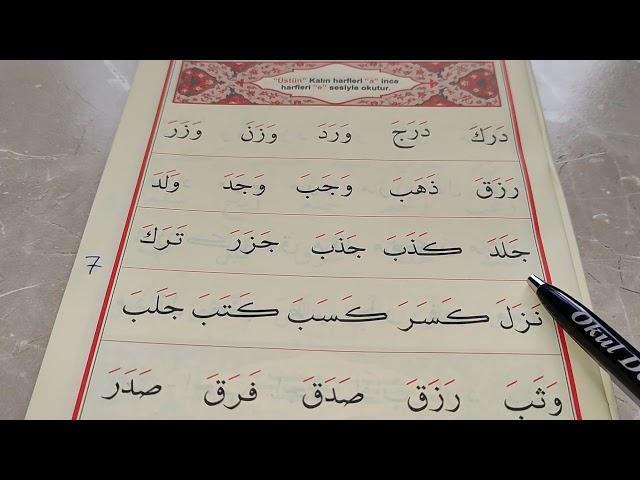 "Üstün" Kalın harfleri "a" ince
harfleri "e" sesiyle okutur.
دَرَكَ دَرَجَ وَرَدَ وَزَنَ وَزَرَ
رَزَقَ ذَهَبَ وَجَبَ وَجَدَ وَلَدَ
جَلَدَ كَذَبَ جَذَبَ جَزَرَ تَرَكَ
7
نَزَلَ كَسَرَ كَسَبَ كَتَبَ جَلَبَ
وَثَبَ رَزَقَ صَدَقَ فَرَقَ صَدَرَ
Okul